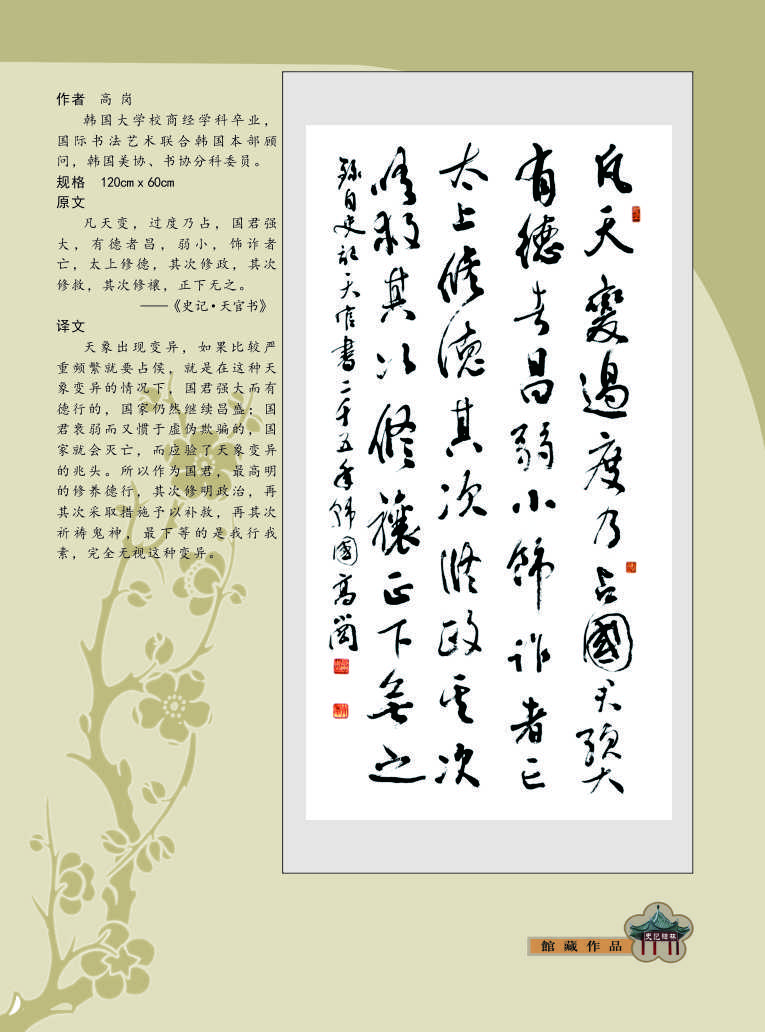 作者 高岗
韩国大学校商经学科卒业，
国际书法艺术联合韩国本部顾
问，韩国美协、书协分科委员。
规格 120cm x 60cm
原文
凡天变，过度乃占，国君强
大，有德者昌，弱小，饰诈者
亡，太上修德，其次修政，其次
修救，其次修禳，正下无之。
——《史记·天官书》
译文
天象出现变异，如果比较严
重频繁就要占侯，就是在这种天
象变异的情况下，国君强大而有
德行的，国家仍然继续昌盛；国
君衰弱而又惯于虚伪欺骗的，国
家就会灭亡，而应验了天象变异
的兆头。所以作为国君，最高明
的修养德行，其次修明政治，再
其次采取措施予以补救，再其次
祈祷鬼神，最下等的是我行我
素，完全无视这种变异。
凡天變過度乃占國君强大
有德者昌弱小飾詐者亡
太上修德其次修政其次
修救其次修禳正下無之
錄自史記天官書二千五年韩國高岗
館藏作品
史记碑林